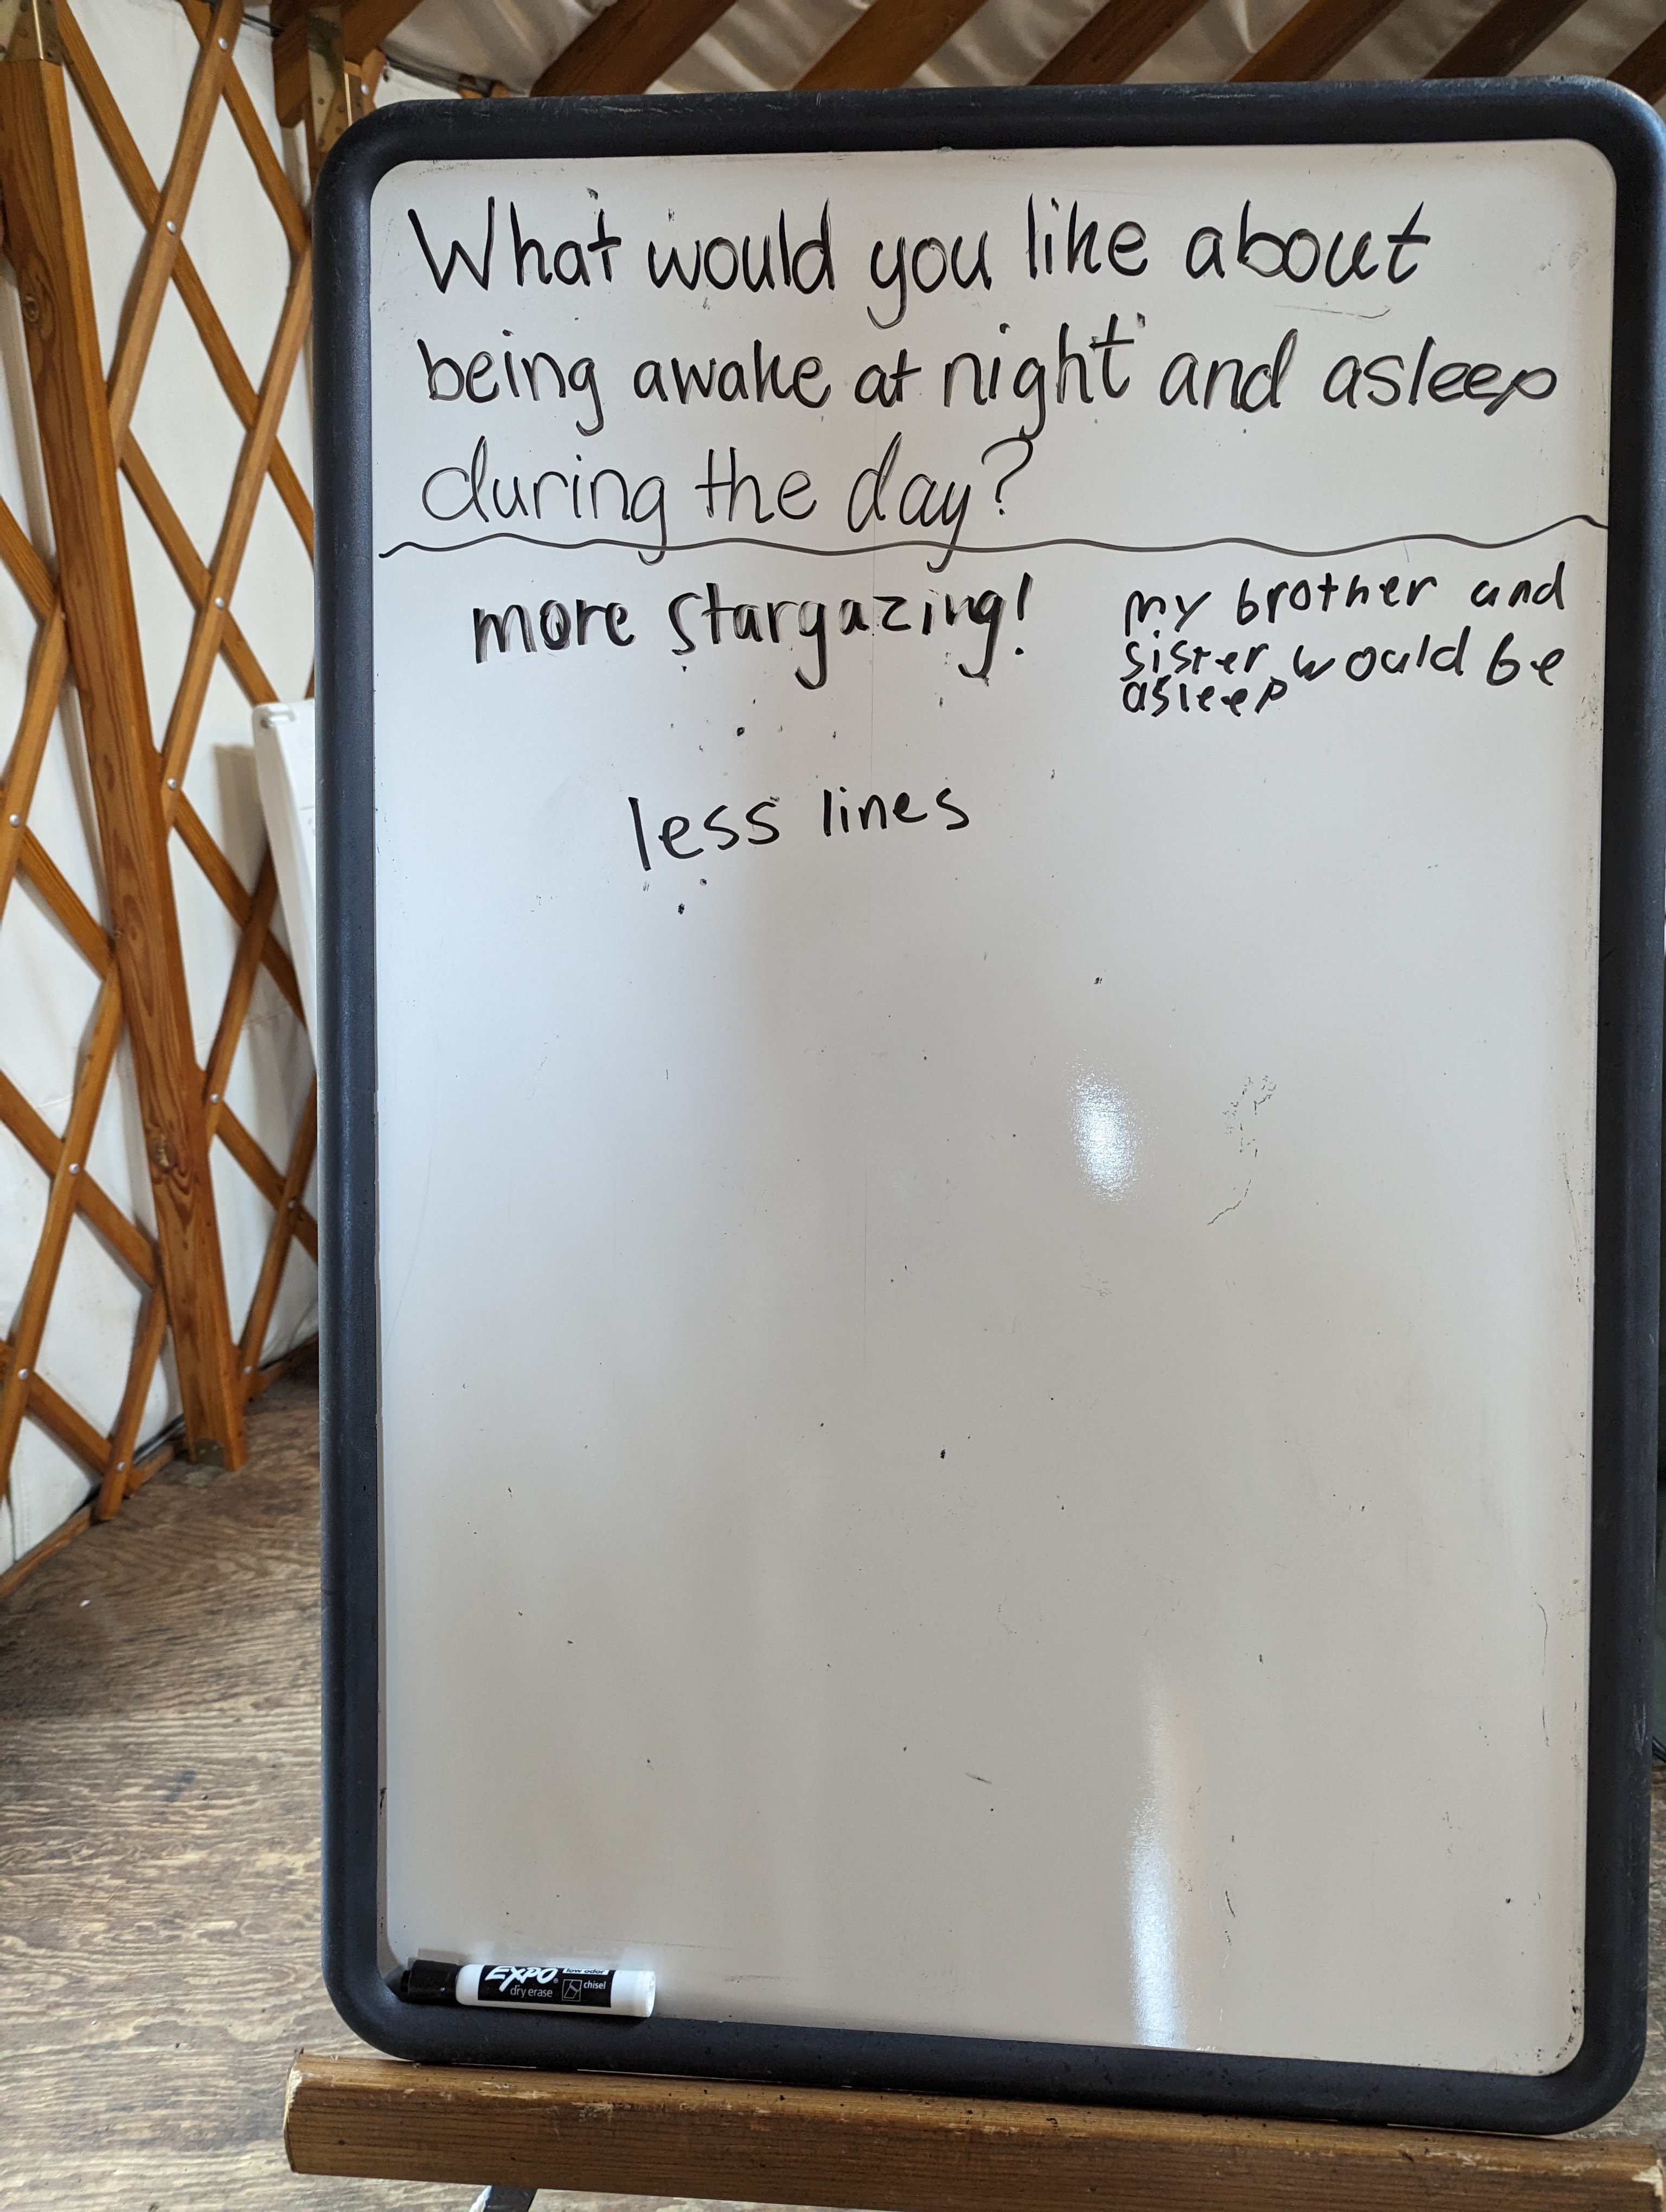 What would you like about
being awake at night and asleep
during the day?
more stargazing!
my brother and
sister would be
asleep
less lines
EXPO
low odor
dry erase
chisel